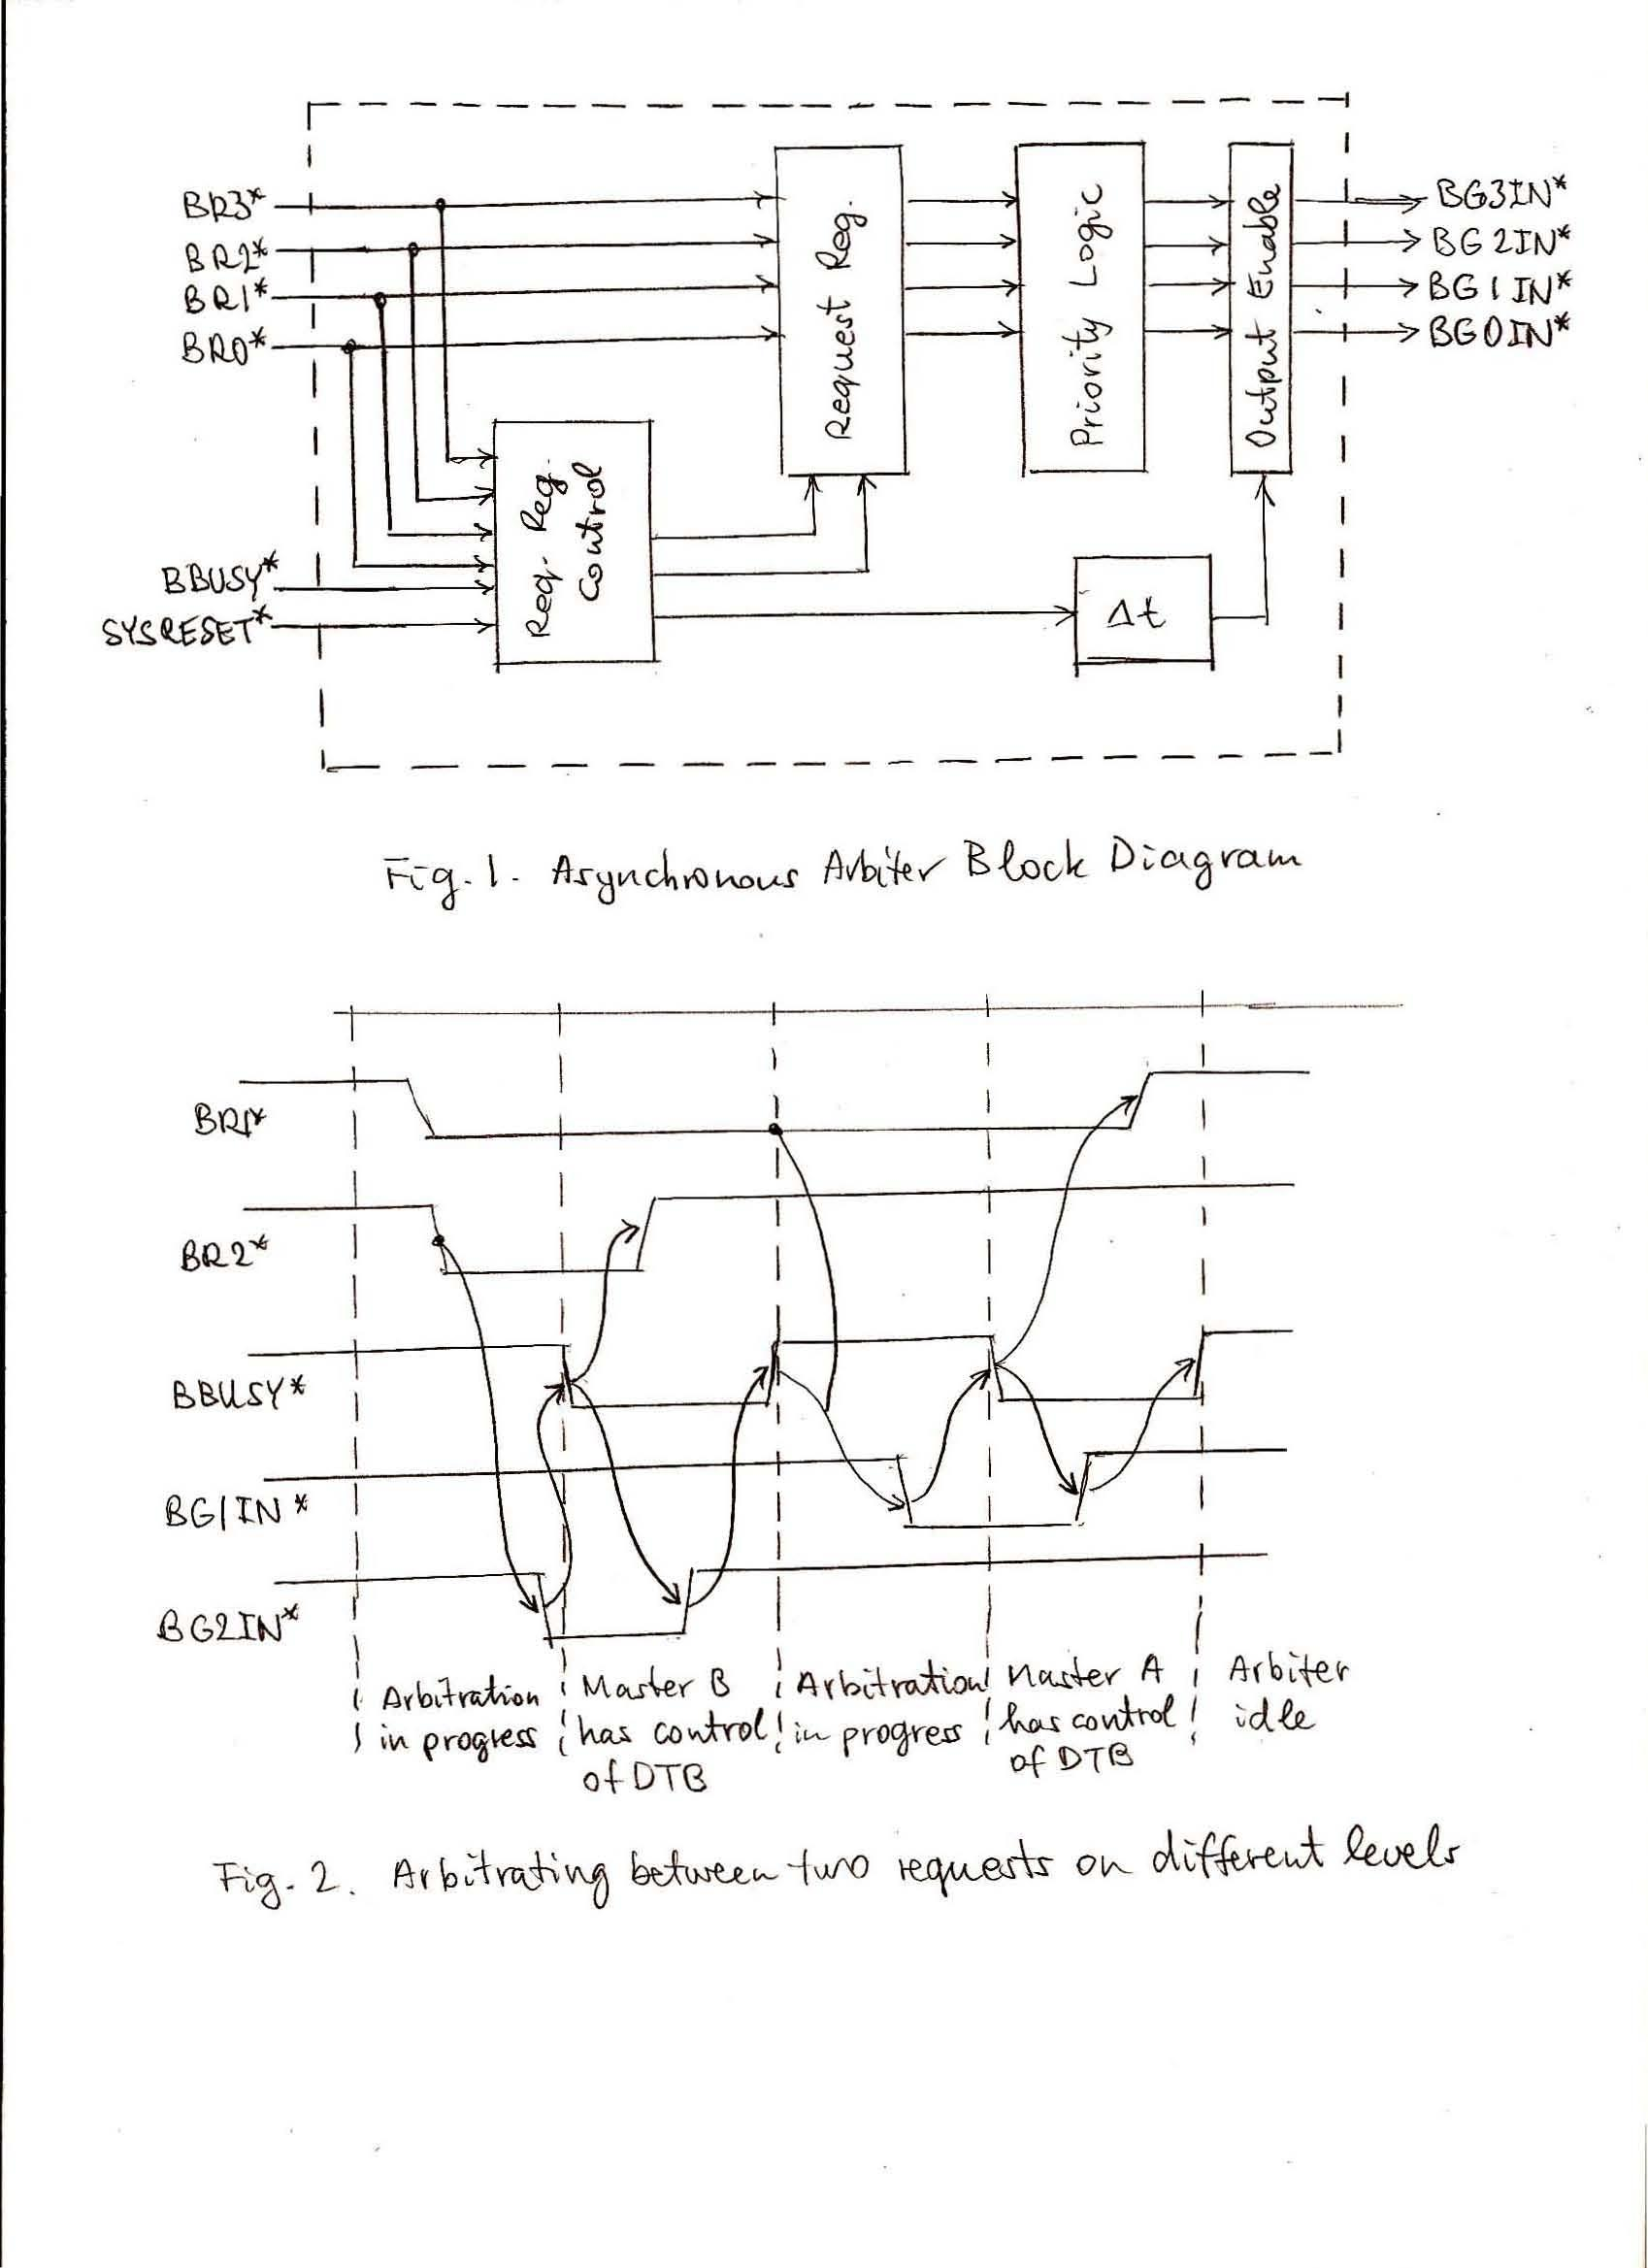 BR3*
BR2*
BR1*
BR0*
BBUSY*
SYSRESET*
Req. Reg.
Control
Request Reg.
Priority Logic
Output Enable
Δt
BG3IN*
BG2IN*
BG1IN*
BG0IN*
Fig. 1. Asynchronous Arbiter Block Diagram
BR1*
BR2*
BBUSY*
BG1IN*
BG2IN*
Arbitration
in progress
Master B
has control
of DTB
Arbitration
in progress
Master A
has control
of DTB
Arbiter
idle
Fig. 2. Arbitrating between two requests on different levels